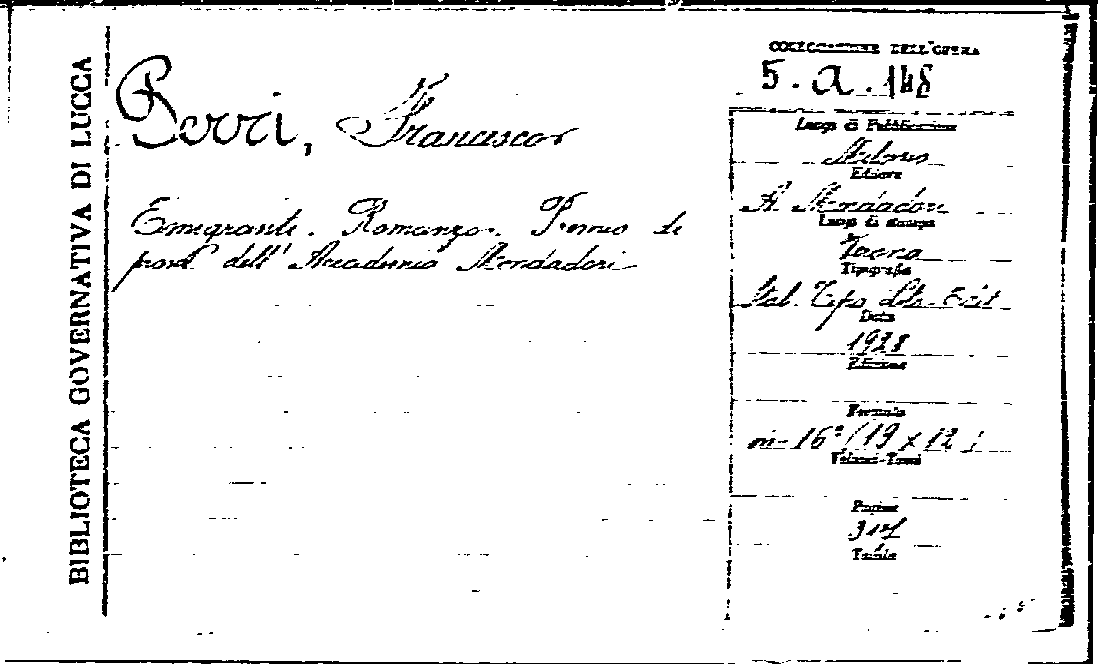 BIBLIOTECA GOVERNATIVA DI LUCCA
Perri, Francesco
Emigranti. Romanzo. Premio di
prosa dell'Accademia Mondadori
COLLOCAZIONE DELL'OPERA
5. a. 148
Luogo di Pubblicazione
Milano
Editore
A. Mondadori
Luogo di stampa
Verona
Tipografia
Stab. Tipo Lito. Edit.
Data
1928
Edizione
Formato
in-16° (19 x 12)
Volumi-Tomi
Pagine
Tavole